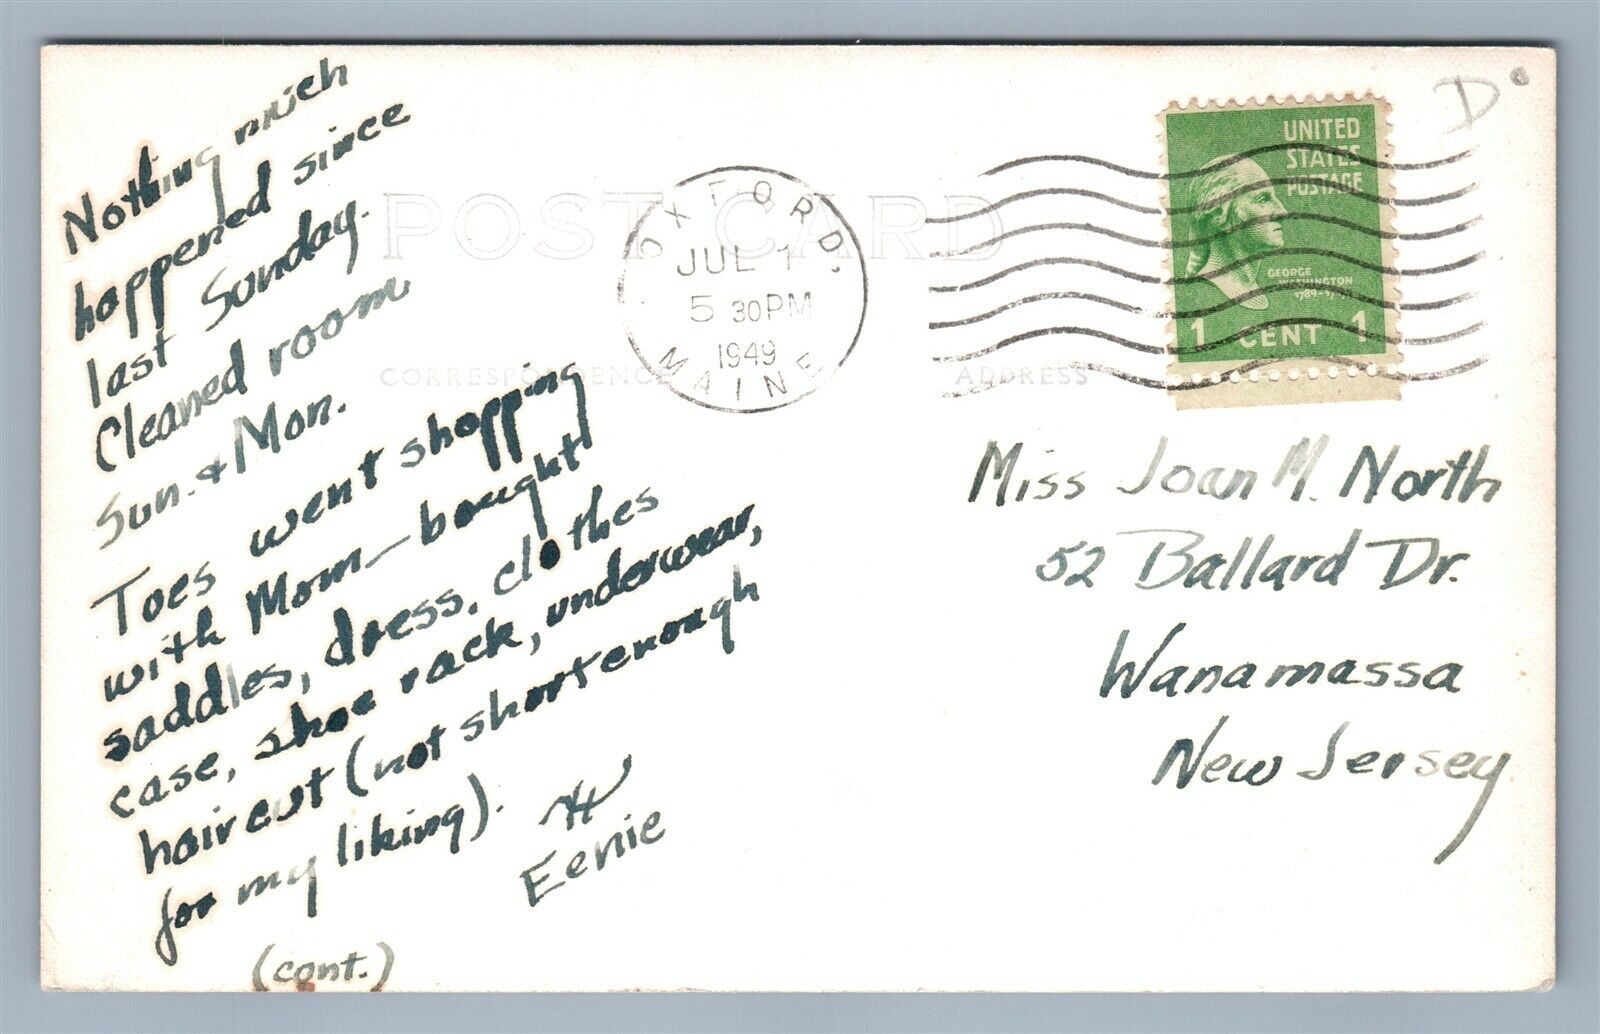 Nothing much
happened since
last Sunday.
Cleaned room
Sun. & Mon.
Toes went shopping
with Mom—bought
saddles, dress, clothes
case, shoe rack, underwear,
haircut (not short enough
for my liking).
Eenie
(cont.)
POST CARD
CORRESPONDENCE
ADDRESS
OXFORD,
JUL 1
5 30 PM
1949
MAINE
UNITED
STATES
POSTAGE
GEORGE
WASHINGTON
1 CENT 1
D
Miss Joan M. North
52 Ballard Dr.
Wanamassa
New Jersey